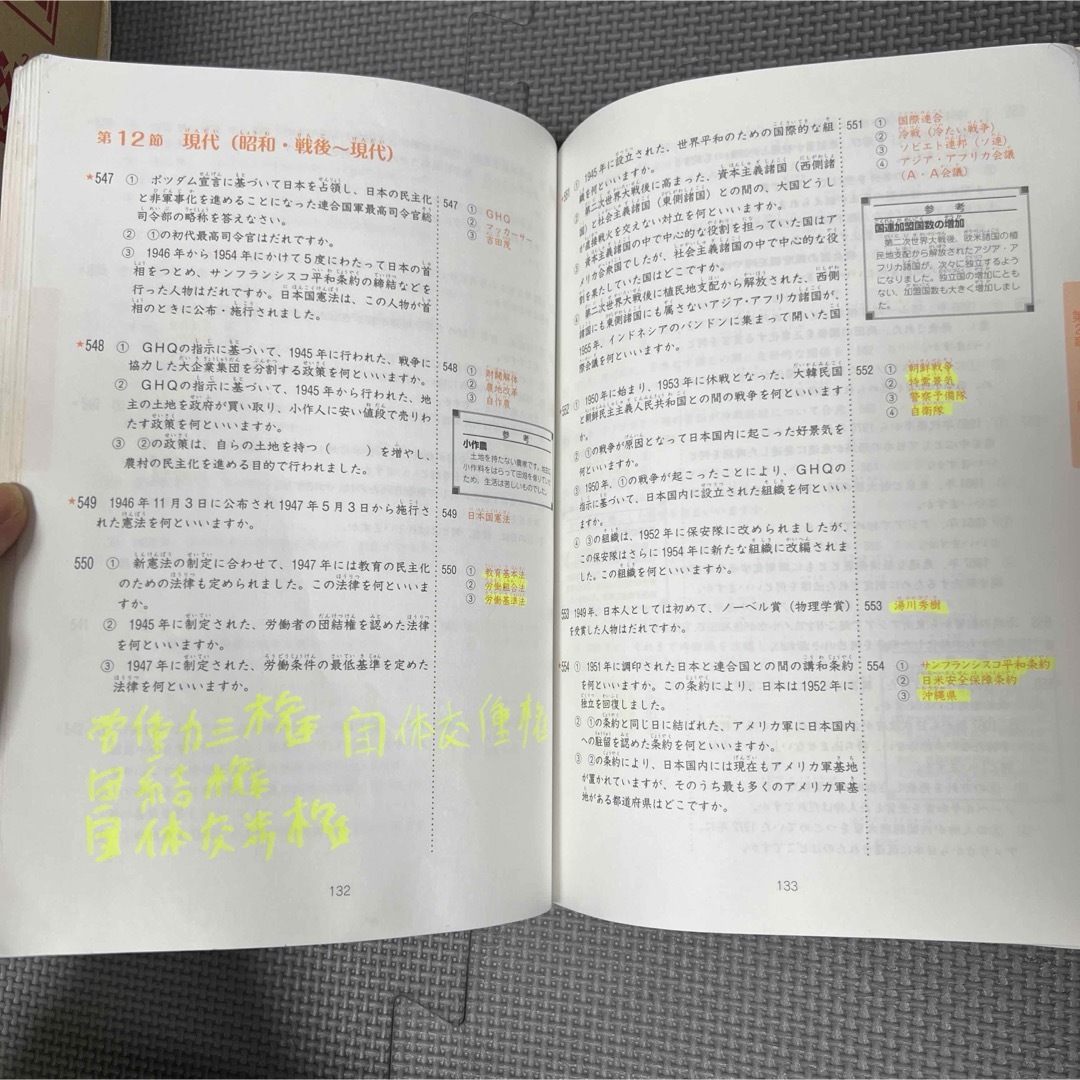 第12節 現代(昭和・戦後〜現代)
★547 ① ポツダム宣言に基づいて日本を占領し、日本の民主化
と非軍事化を進めることになった連合国軍最高司令官総
司令部の略称を答えなさい。
② ①の初代最高司令官はだれですか。
③ 1946年から1954年にかけて5度にわたって日本の首
相をつとめ、サンフランシスコ平和条約の締結などを
行った人物はだれですか。日本国憲法は、この人物が首
相のときに公布・施行されました。
547
① GHQ
② マッカーサー
③ 吉田茂
★548 ① GHQの指示に基づいて、1945年に行われた、戦争に
協力した大企業集団を分割する政策を何といいますか。
② GHQの指示に基づいて、1945年から行われた、地
主の土地を政府が買い取り、小作人に安い値段で売りわ
たす政策を何といいますか。
③ ②の政策は、自らの土地を持つ( )を増やし、
農村の民主化を進める目的で行われました。
548
① 財閥解体
② 農地改革
③ 自作農
参考
小作農
土地を持たない農家です。地主に
小作料をはらって田畑を借りていた
ため、生活は苦しいものでした。
★549 1946年11月3日に公布され1947年5月3日から施行さ
れた憲法を何といいますか。
549
日本国憲法
550 ① 新憲法の制定に合わせて、1947年には教育の民主化
のための法律も定められました。この法律を何といいま
すか。
② 1945年に制定された、労働者の団結権を認めた法律
を何といいますか。
③ 1947年に制定された、労働条件の最低基準を定めた
法律を何といいますか。
550
① 教育基本法
② 労働組合法
③ 労働基準法
団結権
132
① 1945年に設立された、世界平和のための国際的な組
織を何といいますか。
② 第二次世界大戦後に高まった、資本主義諸国(西側諸
国)と社会主義諸国(東側諸国)との間の、大国どうし
が直接戦火を交えない対立を何といいますか。
③ 資本主義諸国の中で中心的な役割を担っていた国はア
メリカ合衆国でしたが、社会主義諸国の中で中心的な役
割を果たしていた国はどこですか。
④ 第二次世界大戦後に植民地支配から解放された、西側
諸国にも東側諸国にも属さないアジア・アフリカ諸国が、
1955年、インドネシアのバンドンに集まって開いた国
際会議を何といいますか。
551
① 国際連合
② 冷戦(冷たい戦争)
③ ソビエト連邦(ソ連)
④ アジア・アフリカ会議
(A・A会議)
参考
国連加盟国数の増加
第二次世界大戦後、欧米諸国の植
民地支配から解放されたアジア・ア
フリカ諸国が、次々に独立するよう
になりました。独立国の増加にとも
ない、加盟国数も大きく増加しまし
た。
★552 ① 1950年に始まり、1953年に休戦となった、大韓民国
と朝鮮民主主義人民共和国との間の戦争を何といいます
か。
② ①の戦争が原因となって日本国内に起こった好景気を
何といいますか。
③ 1950年、①の戦争が起こったことにより、GHQの
指示に基づいて、日本国内に設立された組織を何といい
ますか。
④ ③の組織は、1952年に保安隊に改められましたが、
この保安隊はさらに1954年に新たな組織に改編されま
した。この組織を何といいますか。
552
① 朝鮮戦争
② 特需景気
③ 警察予備隊
④ 自衛隊
553 1949年、日本人としては初めて、ノーベル賞(物理学賞)
を受賞した人物はだれですか。
553
湯川秀樹
★554 ① 1951年に調印された日本と連合国との間の講和条約
を何といいますか。この条約により、日本は1952年に
独立を回復しました。
② ①の条約と同じ日に結ばれた、アメリカ軍に日本国内
への駐留を認めた条約を何といいますか。
③ ②の条約により、日本国内には現在もアメリカ軍基地
が置かれていますが、そのうち最も多くのアメリカ軍基
地がある都道府県はどこですか。
554
① サンフランシスコ平和条約
② 日米安全保障条約
③ 沖縄県
133